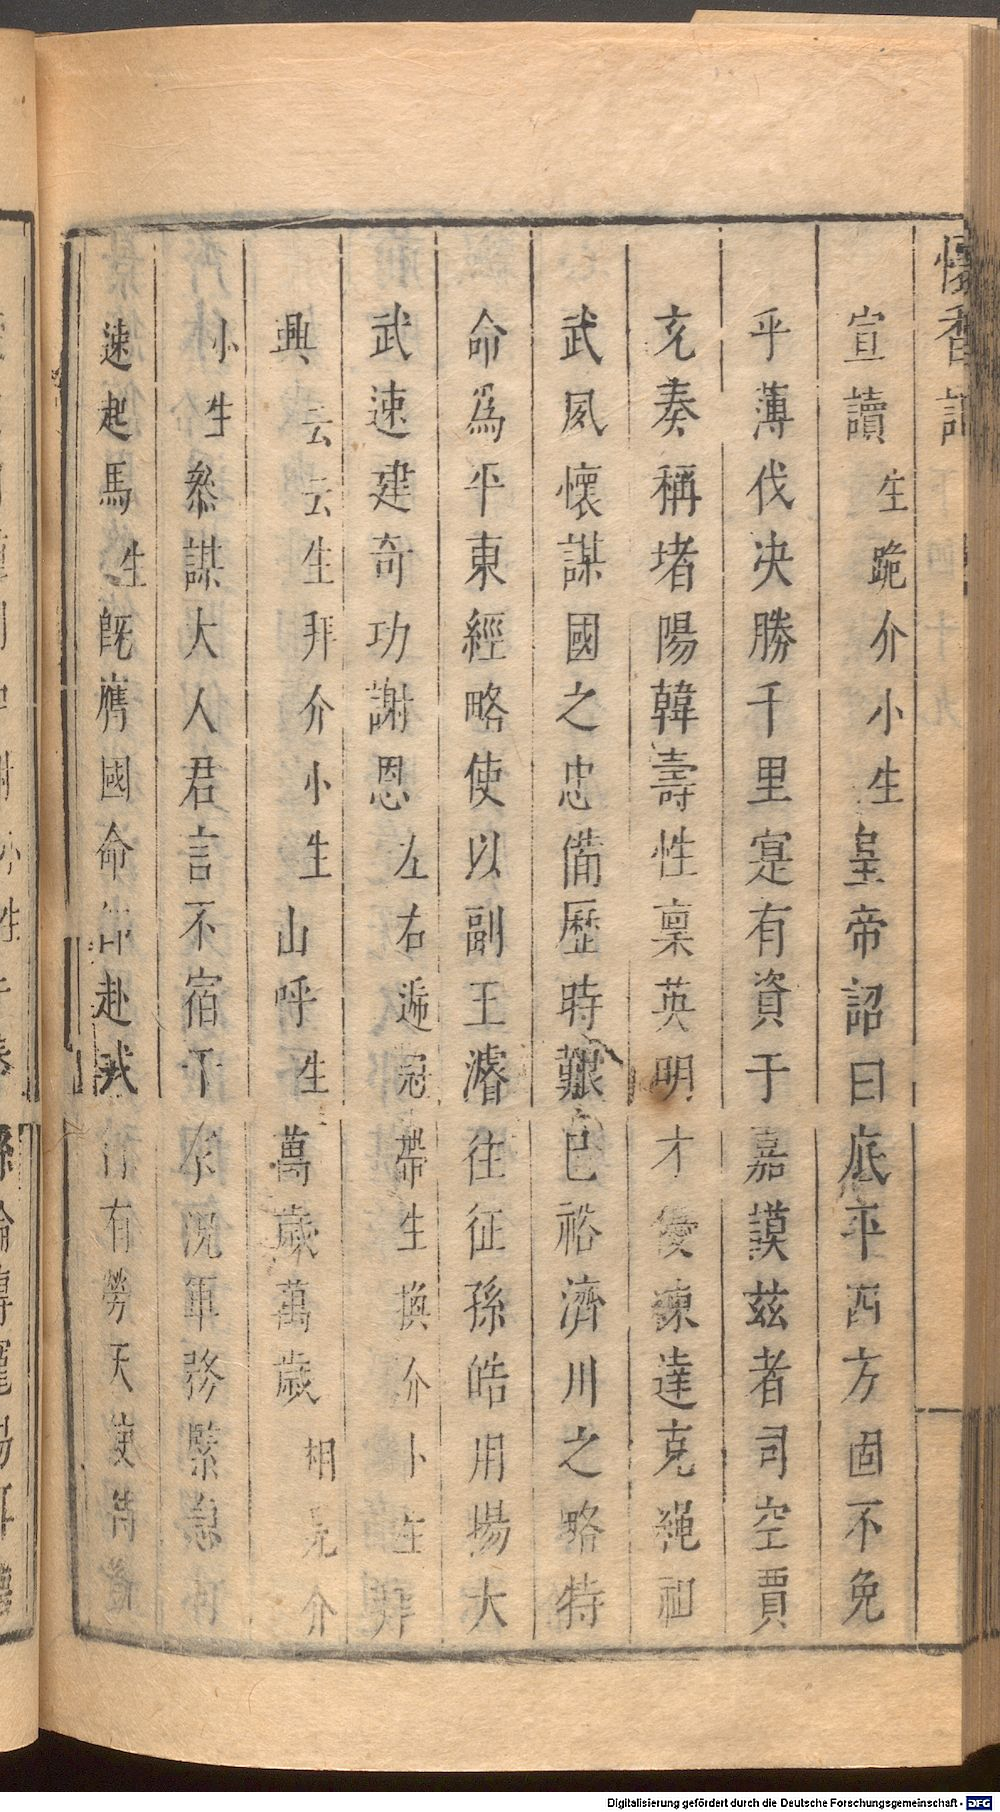 懷香記
宣讀生跪介小生皇帝詔曰底平西方固不免
乎薄伐决勝千里寔有資于嘉謨茲者司空賈
充奏稱堵陽韓壽性稟英明才優練達克繩祖
武夙懷謀國之忠備歷時艱已裕濟川之略特
命爲平東經略使以副王濬往征孫皓用揚大
武速建奇功謝恩左右遞冠帶生換介卜生拜
興云云生拜介小生山呼生萬歲萬歲相見介
小生叅謀大人君言不宿于家况軍務緊急
速起馬生旣膺國命卽赴戎行有勞天使
Digitalisierung gefördert durch die Deutsche Forschungsgemeinschaft - DFG